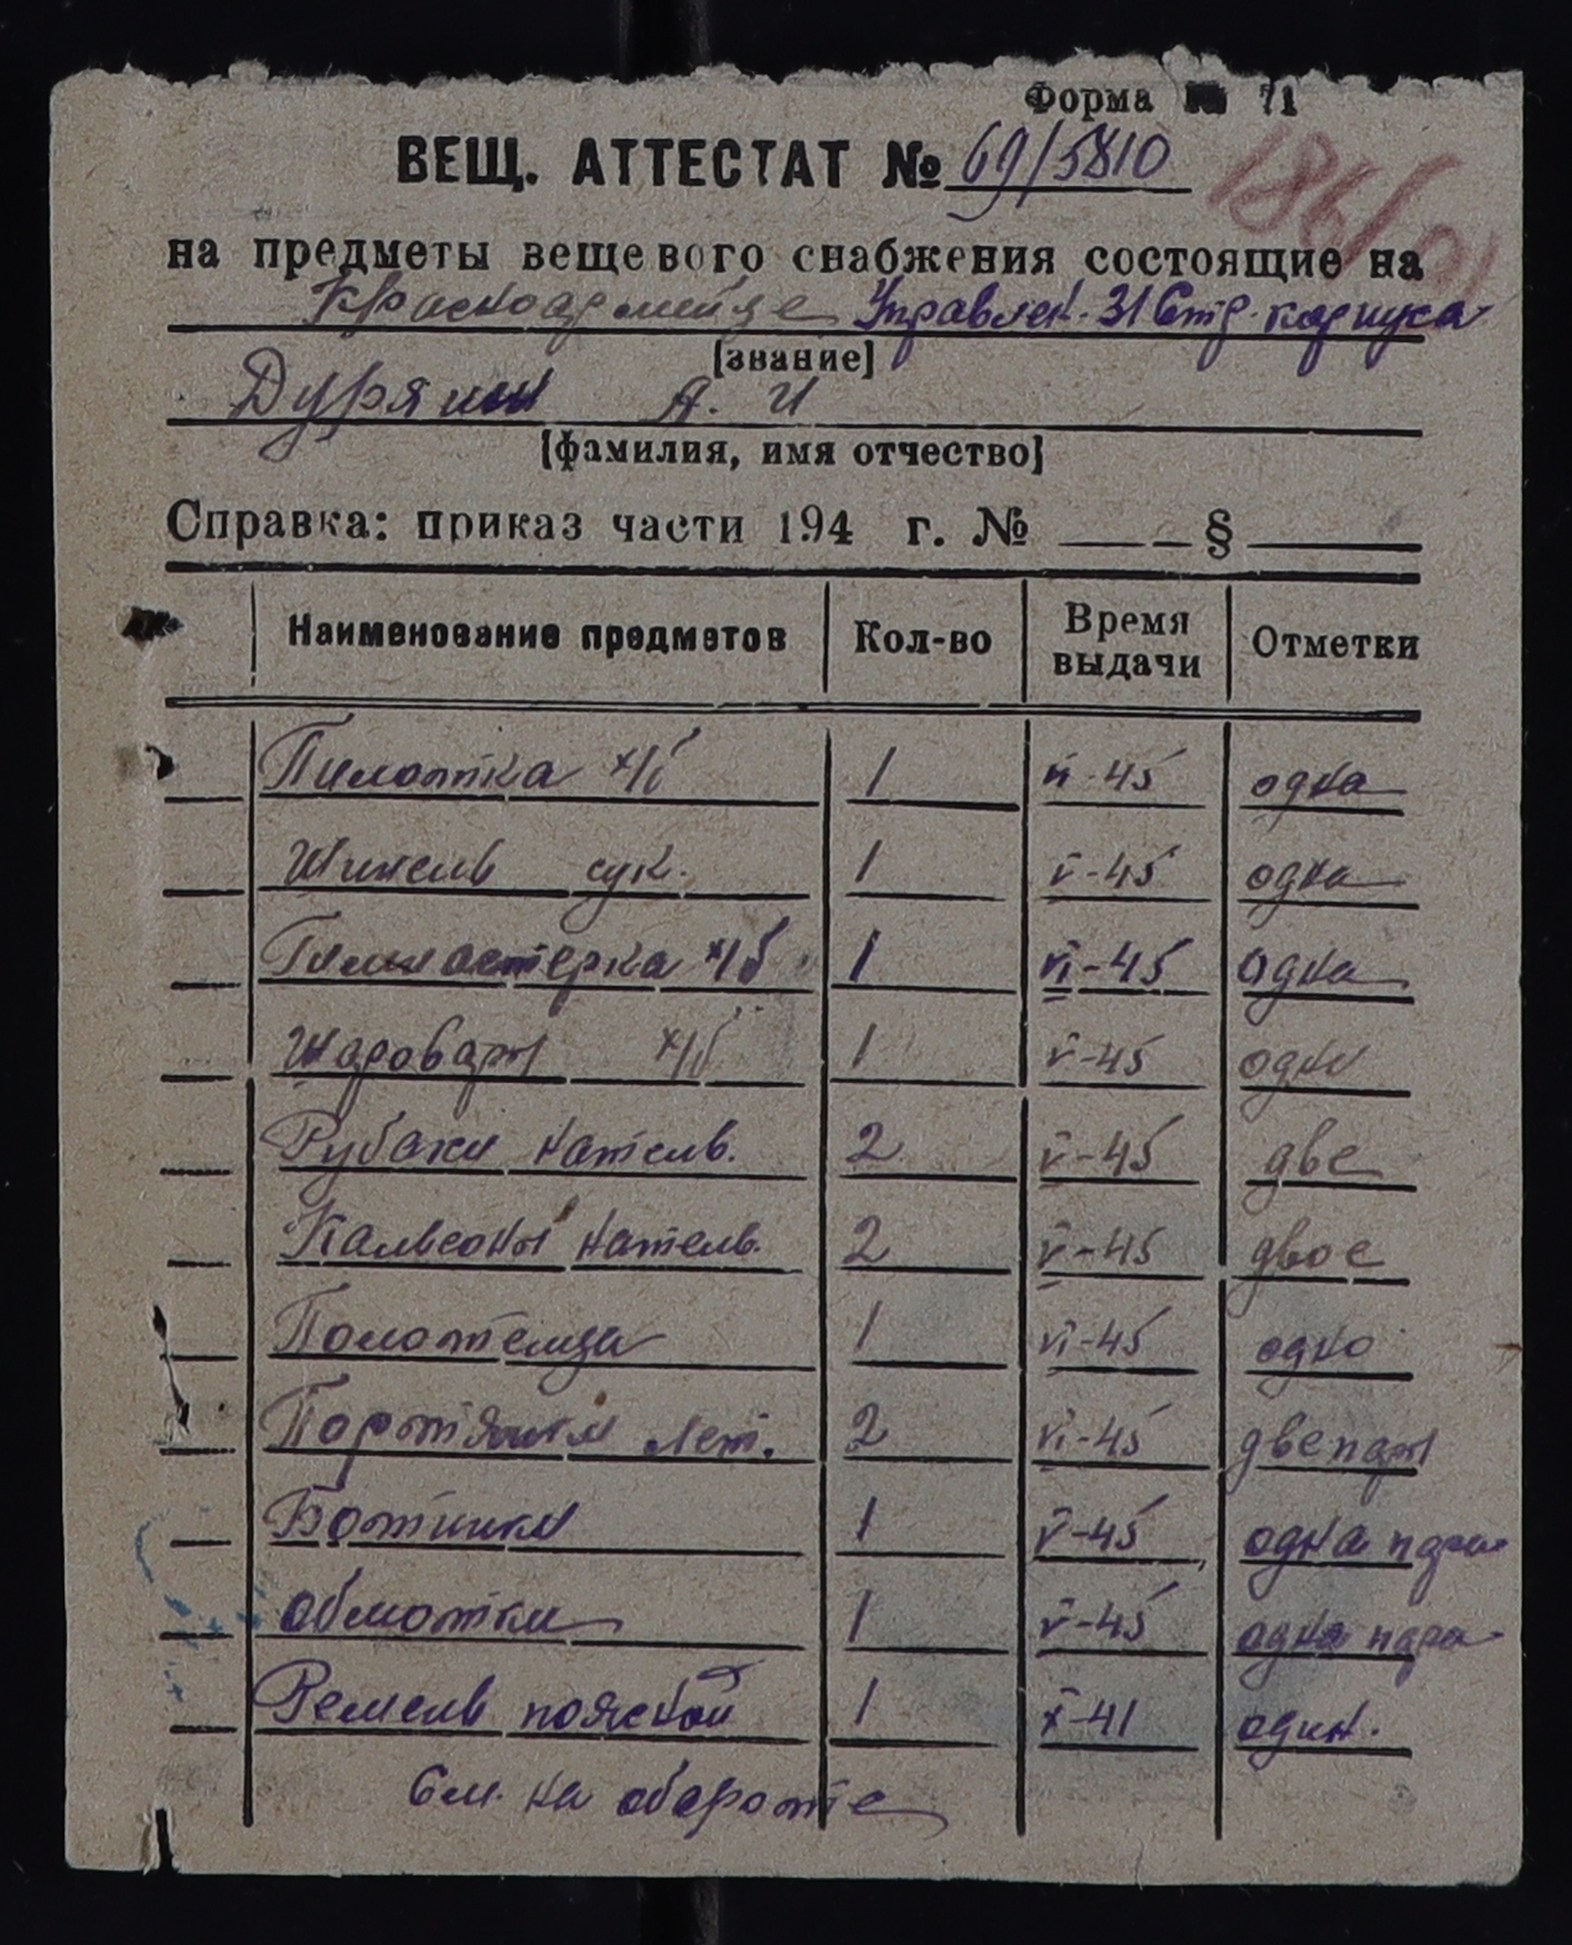 Форма № 71
ВЕЩ. АТТЕСТАТ № 69/5810
на предметы вещевого снабжения состоящие на
Красноармейце Управлен. 31 Стр. корпуса
[звание]
Дурякин А. И
[фамилия, имя отчество]
Справка: приказ части 194 г. № §
Наименование предметов Кол-во Время выдачи Отметки
Пилотка х/б 1 VI-45 одна
Шинель сук. 1 V-45 одна
Гимнастерка х/б 1 VI-45 одна
Шаровары х/б 1 V-45 одни
Рубахи нательв. 2 V-45 две
Кальсоны нательв. 2 V-45 двое
Полотенца 1 VI-45 одно
Портянки лет. 2 VI-45 две пары
Ботинки 1 V-45 одна пара
Обмотки 1 V-45 одна пара
Ремень поясной 1 X-41 один.
См. на обароте